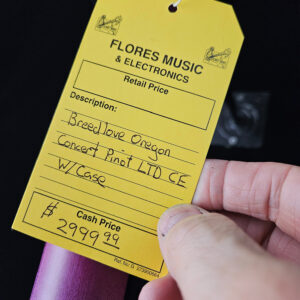 FLORES MUSIC
& ELECTRONICS
Retail Price
Description:
Breedlove Oregon
Concert Pinot LTD CE
W/Case
Cash Price
$ 2999 99